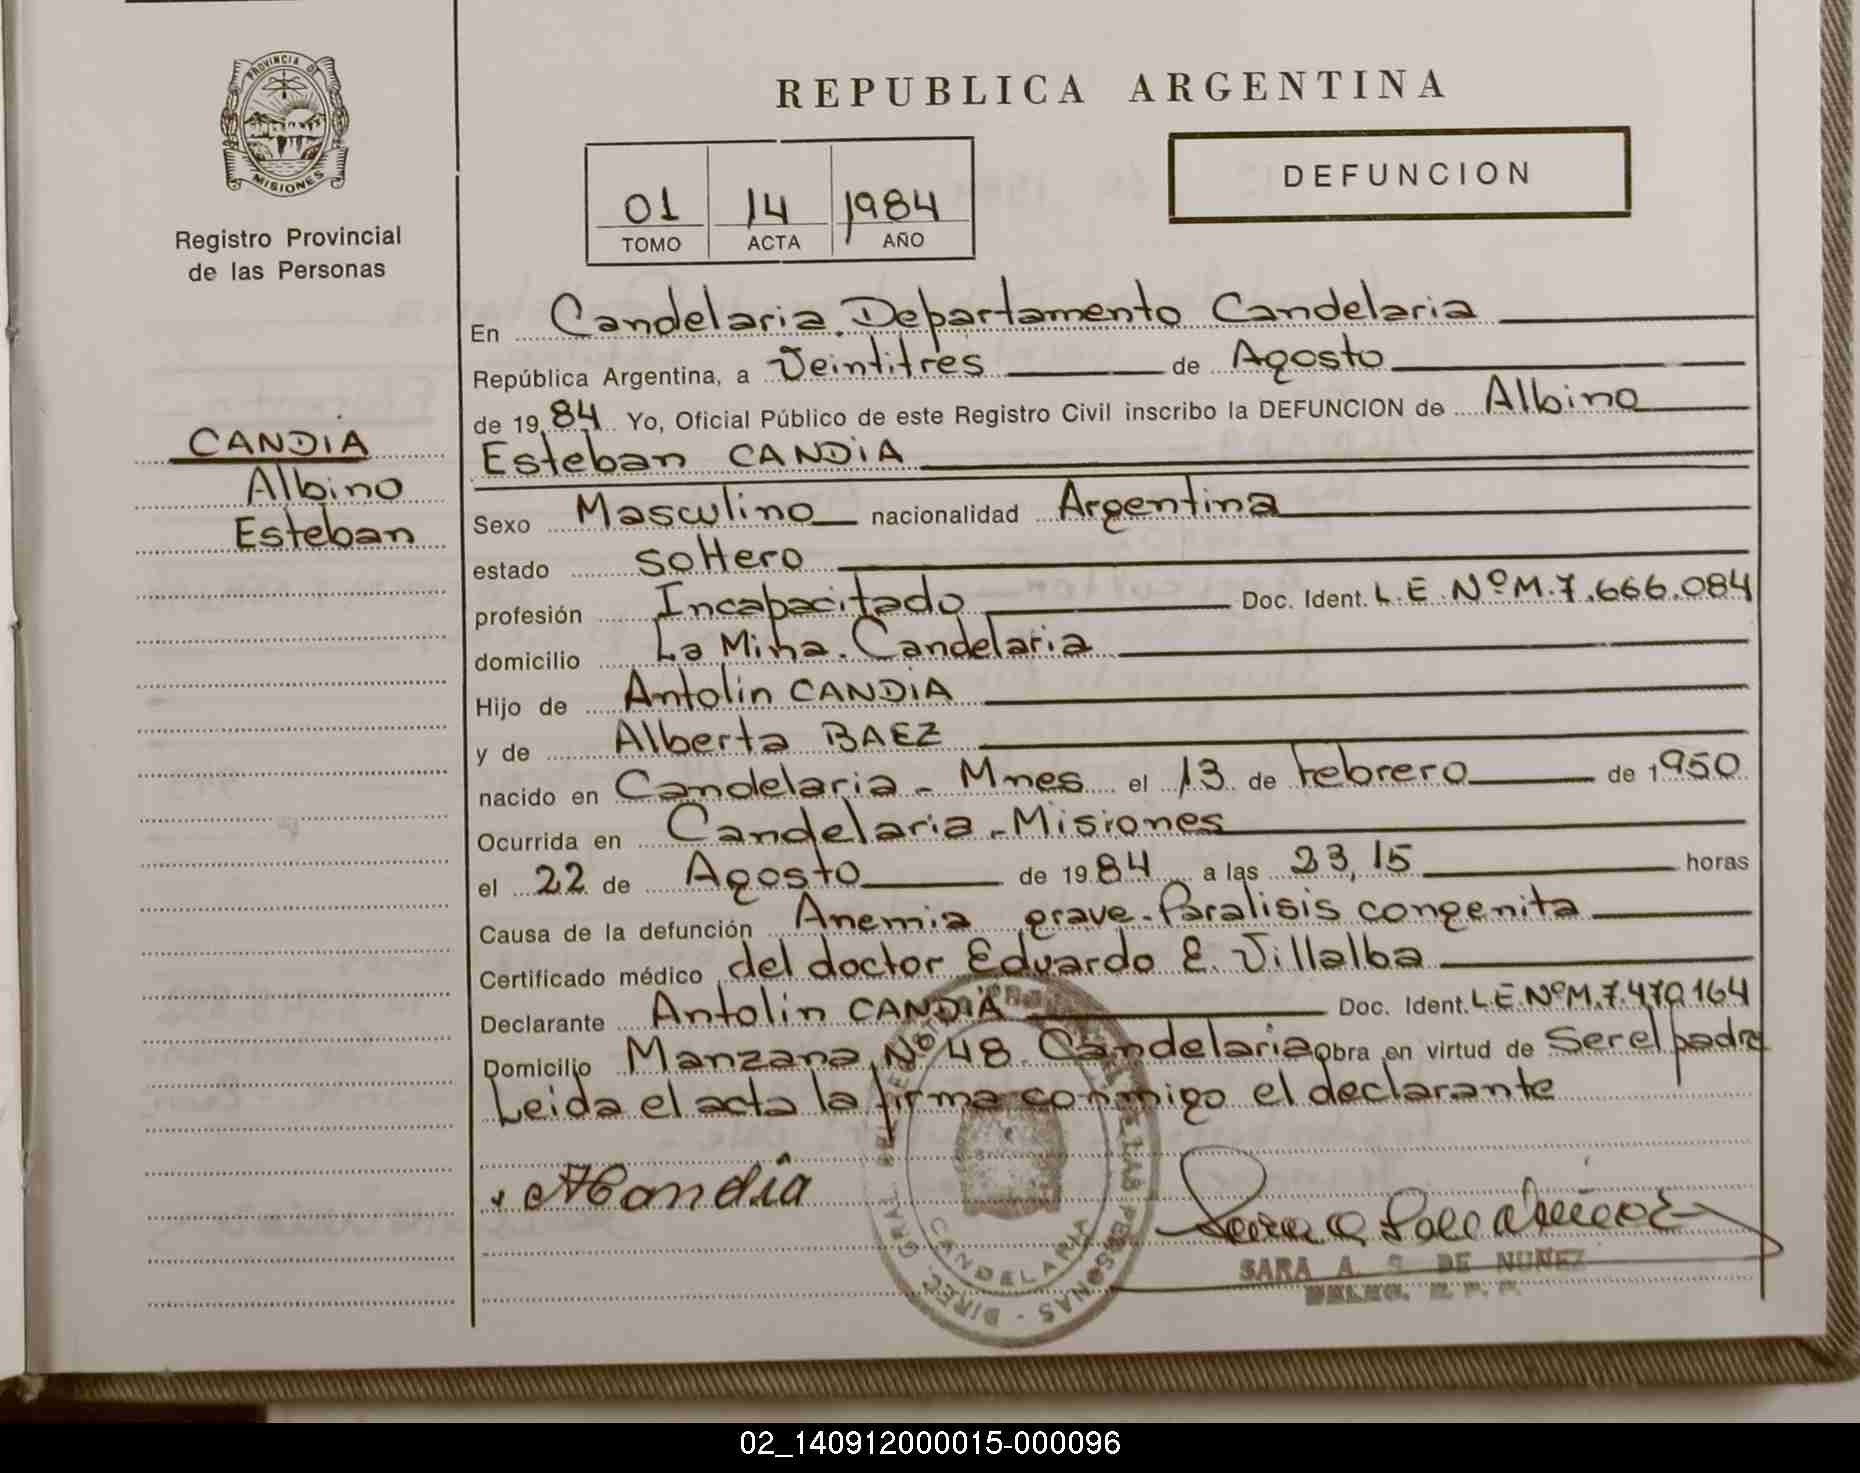 PROVINCIA DE
MISIONES
Registro Provincial
de las Personas
CANDIA
Albino
Esteban
REPUBLICA ARGENTINA
01 14 1984
TOMO ACTA AÑO
DEFUNCION
En Candelaria. Departamento Candelaria
República Argentina, a Veintitres de Agosto
de 1984 Yo, Oficial Público de este Registro Civil inscribo la DEFUNCION de Albino
Esteban CANDIA
Sexo Masculino nacionalidad Argentina
estado soltero
profesión Incapacitado Doc. Ident. L.E. Nº M. 7.666.084
domicilio La Mina. Candelaria
Hijo de Antolin CANDIA
y de Alberta BAEZ
nacido en Candelaria - Mnes el 13 de Febrero de 1950
Ocurrida en Candelaria - Misiones
el 22 de Agosto de 1984 a las 23,15 horas
Causa de la defunción Anemia grave. Paralisis congenita
Certificado médico del doctor Eduardo E. Villalba
Declarante Antolin CANDIA Doc. Ident. L.E. Nº M. 7.470.164
Domicilio Manzana Nº 48. Candelaria Obra en virtud de Ser el padre
Leida el acta la firma conmigo el declarante
Candia
DIREC. GRAL. DE LAS PERSONAS
CANDELARIA
SARA A. DE NUÑEZ
02_140912000015-000096